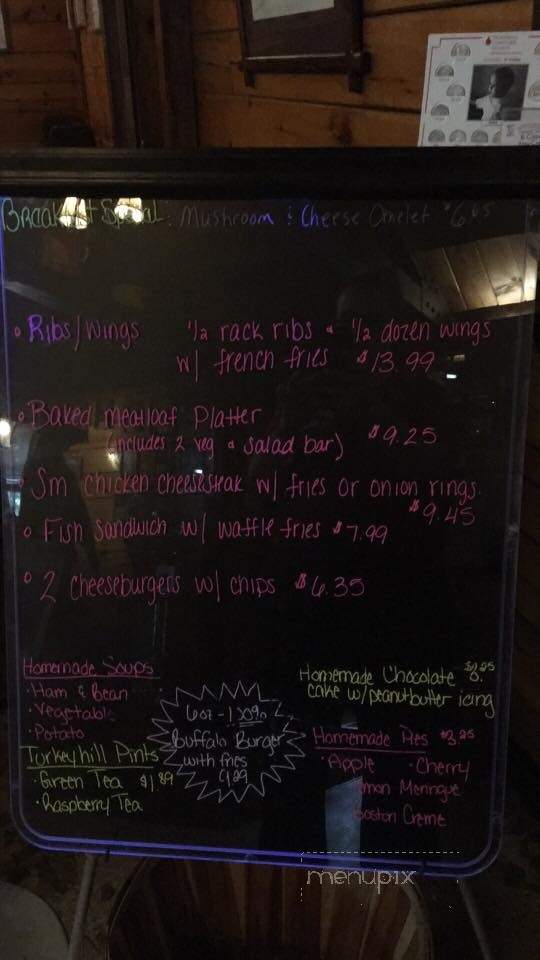 Breakfast Special: Mushroom & Cheese Omelet $6.05
Ribs/Wings 1/2 rack ribs & 1/2 dozen wings
w/ french fries $13.99
Baked meatloaf Platter
(includes 2 veg & salad bar) $9.25
Sm chicken cheesesteak w/ fries or onion rings
$9.45
Fish Sandwich w/ waffle fries $7.99
2 Cheeseburgers w/ chips $6.35
Homemade Soups
Ham & Bean
Vegetable
Potato
Turkeyhill Pints
Green Tea $1.89
Raspberry Tea
6oz - 100%
Buffalo Burger
with fries
Homemade Chocolate
cake w/peanutbutter icing
Homemade Pies $3.25
Apple Cherry
Lemon Meringue
Boston Creme
menupix